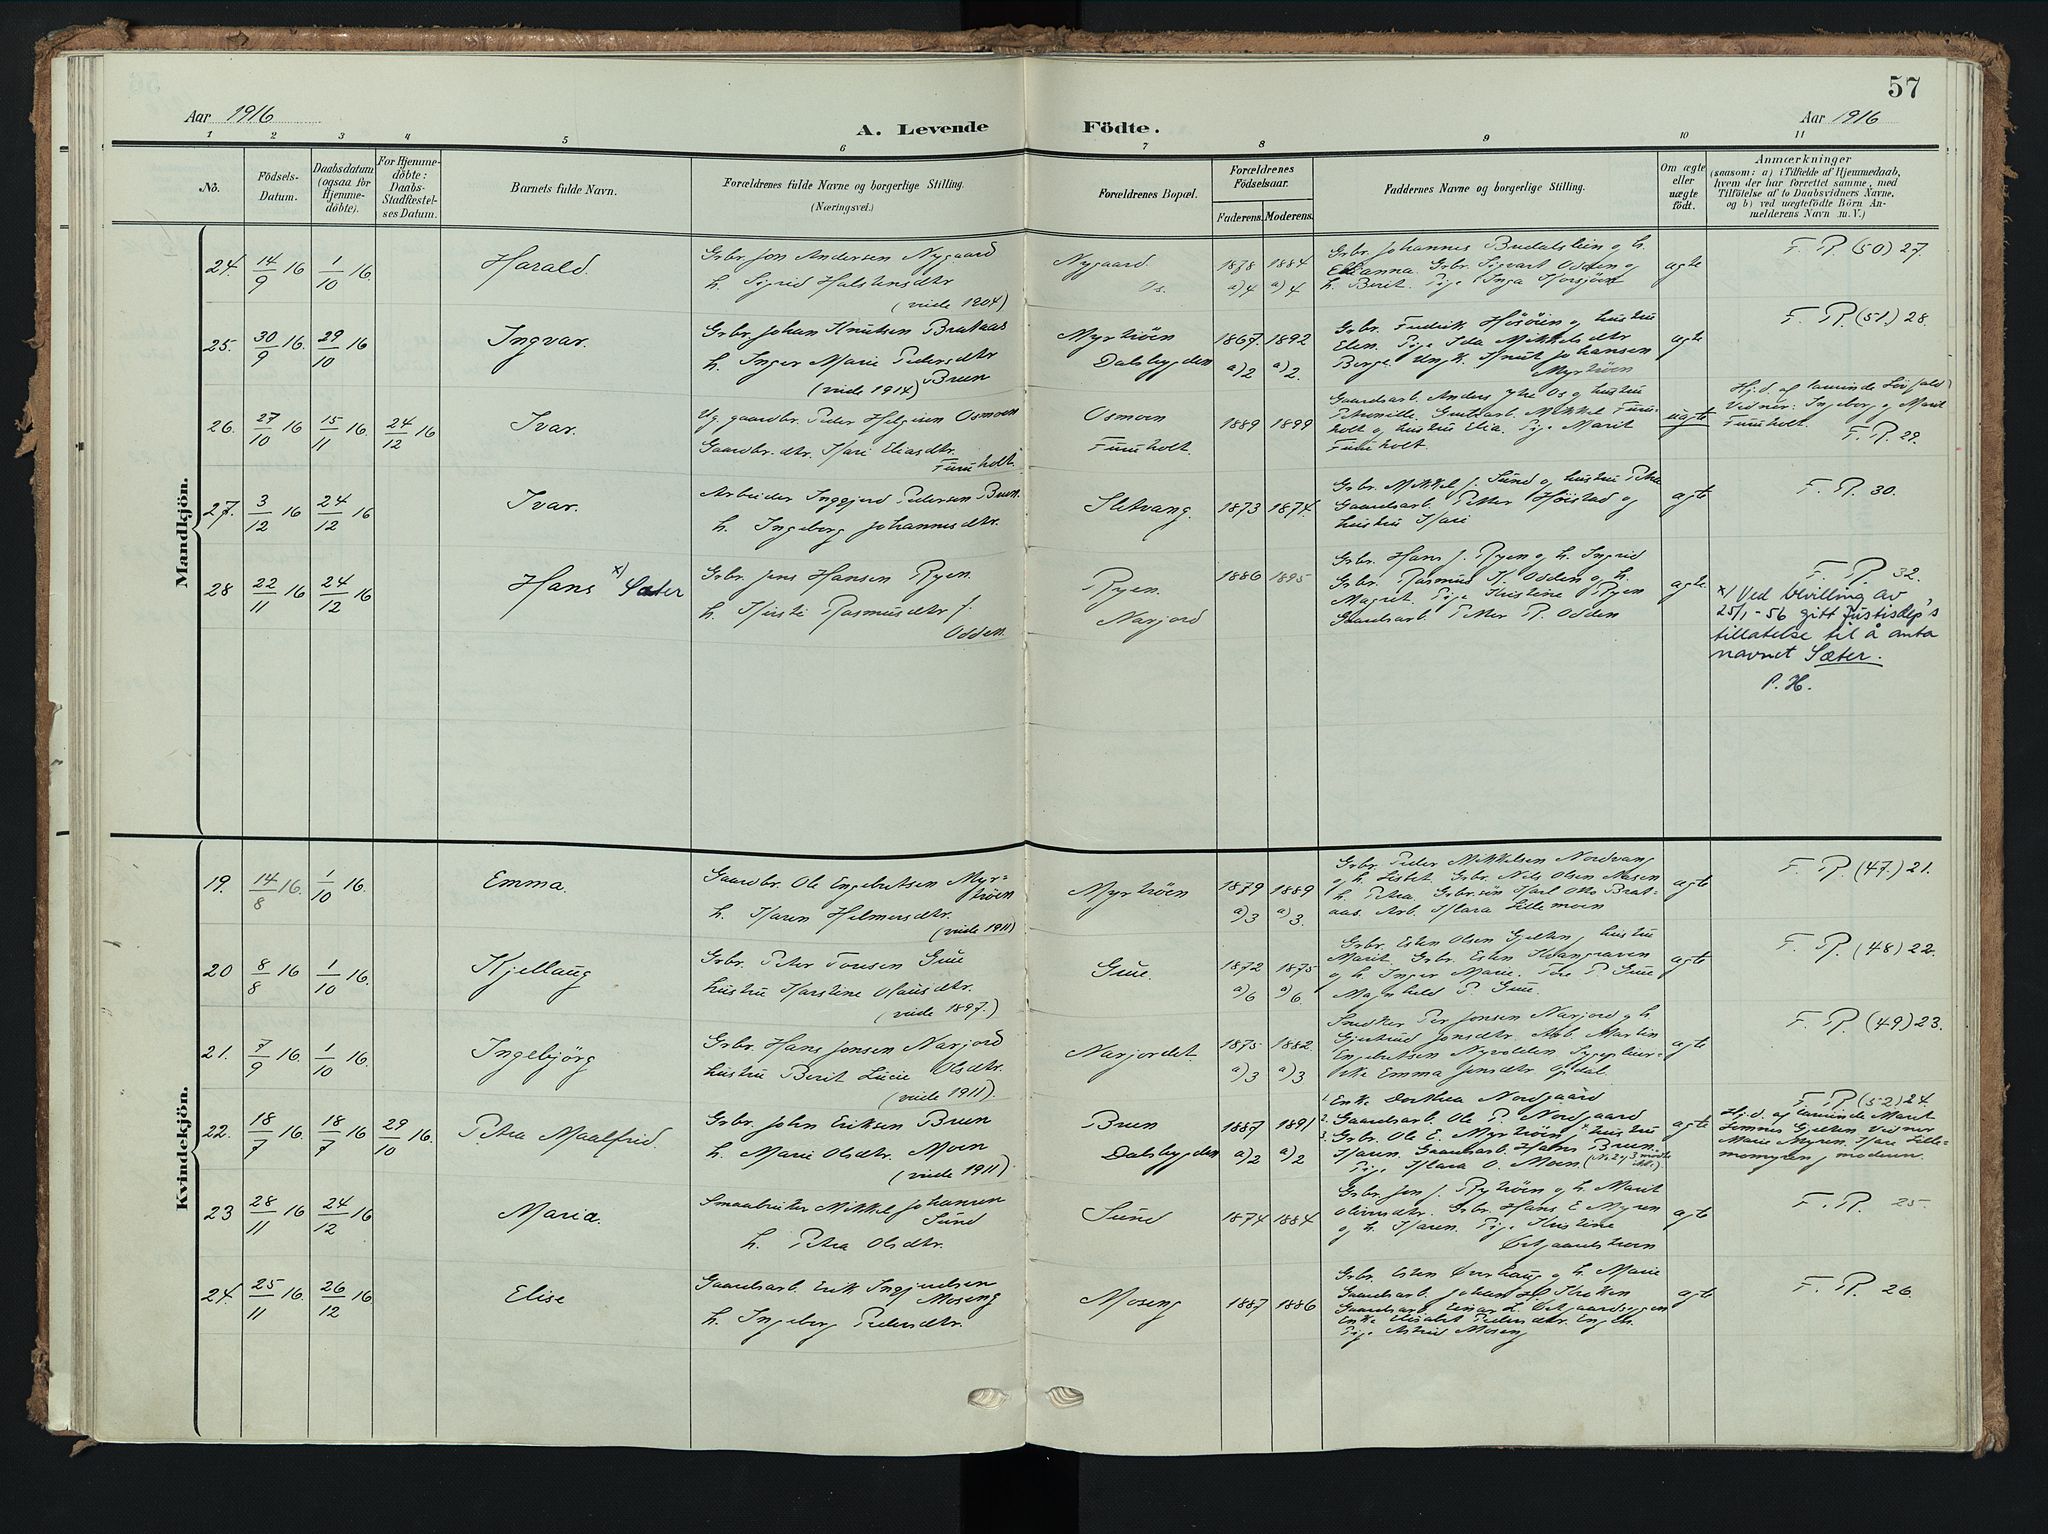 57
Aar 1916
A. Levende Födte.
Aar 1916
1 2 3 4 5 6 7 8 9 10 11
No.
Födsels-
Datum.
Daabsdatum
(ogsaa for
Hjemme-
döbte).
For Hjemme-
döbte:
Daabs-
Stadfæstel-
ses Datum.
Barnets fulde Navn.
Forældrenes fulde Navne og borgerlige Stilling.
(Næringsvei.)
Forældrenes Bopæl.
Forældrenes
Födselsaar.
Faderens. Moderens.
Faddernes Navne og borgerlige Stilling.
Om ægte
eller
uægte
födt.
Anmærkninger
(saasom: a) i Tilfælde af Hjemmedaab,
hvem der har forrettet samme, med
Tilföielse af to Daabsvidners Navne,
og b) ved uægtefödte Börn An-
melderens Navn m. V.)
Mandkjön.
24. 14/9 16 1/10 16. Harald.
Grbr. Jon Andersen Nygaard
h. Sigrid Halstensdtr
(viede 1904)
Nygaard.
Os.
1878 1884
a)4 a)4
Grbr. Johannes Budalslien og h.
Grbr. Sigvart Odden og
h. Berit. Pige Inga
ægte
F. P. (50) 27.
25. 30/9 16. 29/10 16 Ingvar.
Grbr. Johan Knutsen Brataas
h. Inger Marie Pedersdtr
Brun
(viede 1914)
Myrtröen
Dalsbygden
1867. 1892
a)2 a)2.
Grbr. Fredrik Hösöien og hustru
Elen. Pige Ida Mikkelsdtr
Berge. Ungk. Knut Johansen
Myrtröen
ægte
F. P. (51.) 28.
26. 27/10 16 15/11 16. 24/12 16 Ivar.
Ug. gaardbr. Peder Helgesen Osmoen
Gaardbr. dtr. Kari Eliasdtr.
Furuholt.
Osmoen
Furuholt.
1889 1899
Gaardsarb. Anders Os og hustru
Petronille. Mikkel Furu-
holt og hustru Elia. Pige Marit
Furuholt.
uægte
Hj.d. af
Vidner: Ingeborg og Marit
Furuholt.
F. P. 29.
27. 3/12 16 24/12 16 Ivar.
Arbeider Inggjerd Pedersen Brun.
h. Ingeborg Johannesdtr.
Sletvang.
1873 1874.
Grbr. Mikkel J. Sund og hustru
Gaardsarb. Petter Höistad og
hustru Kari
ægte
F. P. 30.
28 22/11 16 24/12 16 Hans x) Sæter
Grbr. Jens Hansen Ryen.
h. Kirsti Rasmusdtr f.
Odden.
Ryen.
Narjord
1886 1895
Grbr. Hans J. Ryen og h. Ingrid
Grbr. Rasmus K. Odden og h.
Magret. Pige Kristine Ryen
Gaardsarb. Petter R. Odden
ægte
F. P. 32.
x) Ved bevilling av
25/1-56 gitt Justisdep's
tillatelse til å anta
navnet Sæter.
P. H.
Kvindekjön.
19. 14/8 16. 1/10 16. Emma.
Gaardbr. Ole Engebretsen Myr-
tröen
h. Karen Helmersdtr.
(viede 1911)
Myrtröen
1879 1889
a)3 a)3.
Grbr. Peder Mikkelsen Nordvang
og h. Lisbet. Grbr. Nils Olsen Næsen
h. Petra Grbr.sön Karl Otto Brat-
aas. Arb. Klara Lillemoen
ægte
F. P. (47.) 21.
20 8/8 16 1/10 16. Kjellaug
Grbr. Peter Tonsen Grue
hustru Karstine Olausdtr.
(viede 1897.)
Grue.
1872 1875
a)6 a)6.
Grbr. Esten Olsen Gjelten, hustru
Marit. Grbr. Esten
og h. Inger Marie. Tore P. Grue
Magnhild P. Grue.
ægte
F. P. (48) 22.
21. 7/9 16. 1/10 16. Ingebjörg
Grbr. Hans Jonsen Narjord
hustru Berit Lucie Olsdtr.
(viede 1911).
Narjordet.
1875 1882.
a)3 a)3
Snedker Per Jonsen Narjord og h.
Gjertrud Jonsdtr. Arb. Martin
Engebretsen Nyvolden
Emma Jensdtr. Opdal.
ægte
F. P. (49) 23.
22. 18/7 16. 18/7 16 29/10 16. Petra Maalfrid.
Grbr. John Eriksen Brun
h. Marie Olsdtr. Moen
(viede 1911)
Brun
Dalsbygden
1887 1891
a)2 a)2
1. Enke Dorthea Nordgaard
2. Gaardsarb. Ole P. Nordgaard
3. Grbr. Ole E. Myrtröen, 4. hustru
Karen. Gaardsarb. Hans Brun
Pige Klara O. Moen.
ægte
F. P. (52) 24.
Hj.d. af Marit
Gjelten. Vidner
Marie Myren. Kari Lille-
momyren, moderen.
23 28/11 16 24/12 16 Maria.
Smaabruker Mikkel Johansen
Sund
h. Petra Olsdtr.
Sund
1874 1884
Grbr. Jon J. Rytröen og h. Marit
Oliversdtr. Grbr. Hans E Myren
og h. Karen. Pige Kristine
ægte
F. P. 25.
24. 25/11 16. 26/12 16 Elise
Gaardsarb. Erik Ingjerdsen
Moseng
h. Ingeborg Pedersdtr.
Moseng
1887 1886
Grbr. Esten Överhaug og h. Marie
Gaardsarb. Johan
Gaardsarb. Einar L.
Enke Elisabet Pedersdtr.
Pige Astrid Moseng
ægte
F. P. 26.